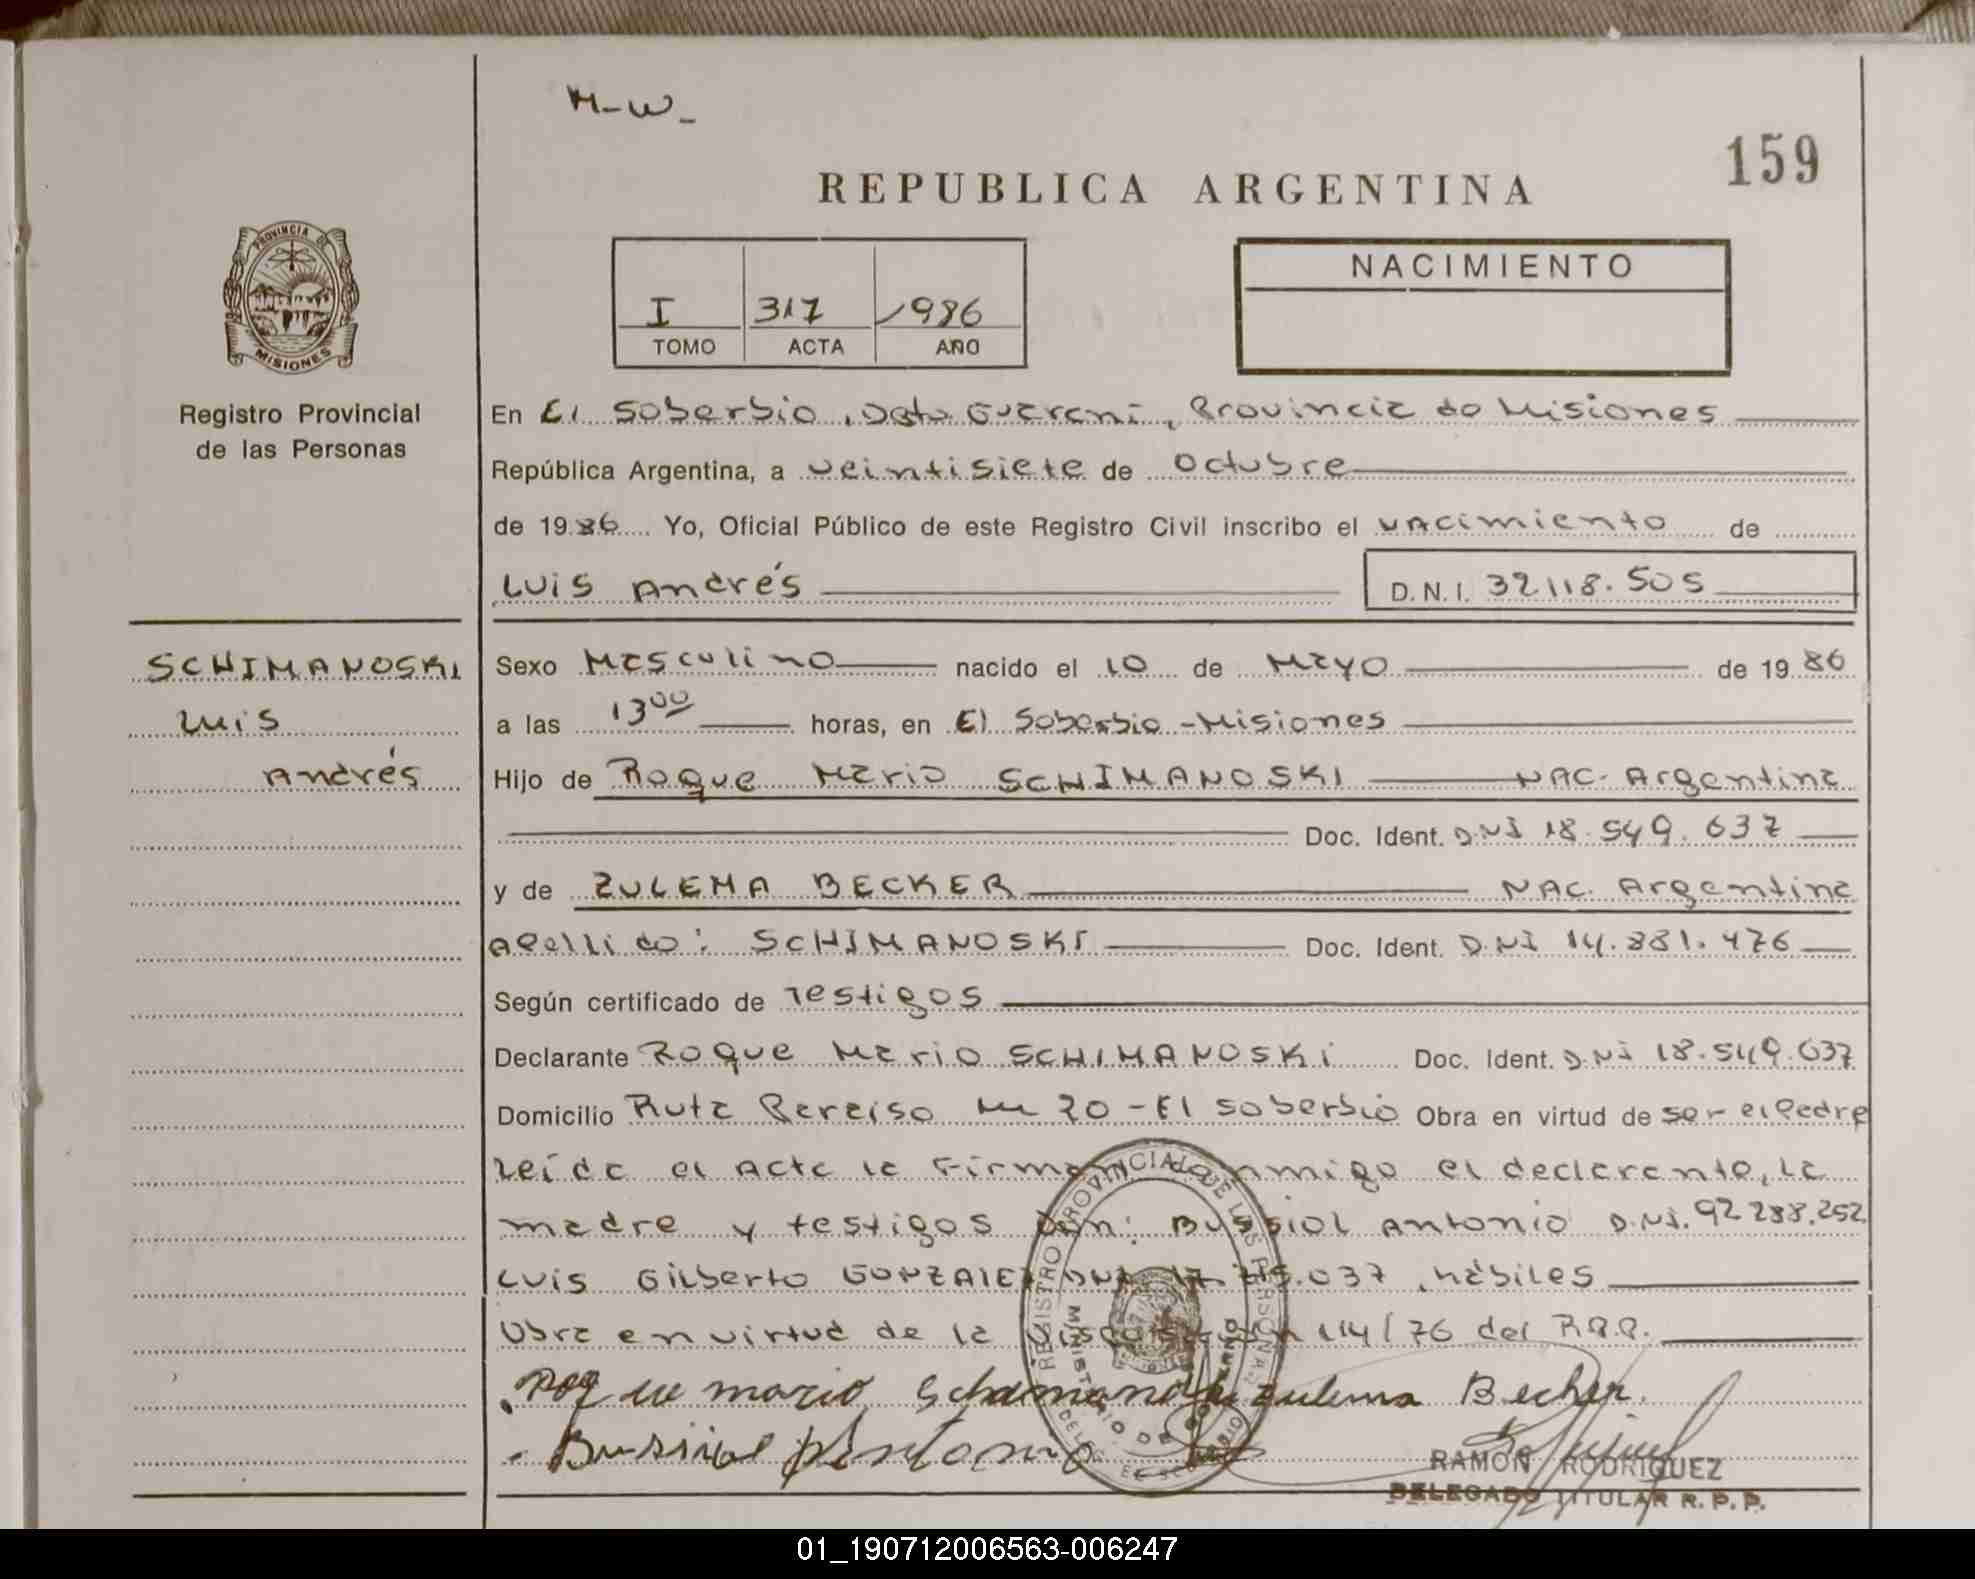 M-W-
159
REPUBLICA ARGENTINA
PROVINCIA DE
MISIONES
Registro Provincial
de las Personas
I 317 1986
TOMO ACTA AÑO
NACIMIENTO
En El Soberbio, Dpto Guaraní, Provincia de Misiones
República Argentina, a veintisiete de Octubre
de 1986 Yo, Oficial Público de este Registro Civil inscribo el NACimiento de
LUIS Andrés D.N.I. 32.118.505
SCHIMANOSKI
Luis
Andrés
Sexo Masculino nacido el 10 de Mayo de 1986
a las 13⁰⁰ horas, en El Soberbio-Misiones
Hijo de Roque Mario SCHIMANOSKI NAC. Argentina
Doc. Ident. D.NI 18.549.637
y de ZULEMA BECKER NAC. Argentina
Apellido: SCHIMANOSKI Doc. Ident. D.NI 14.881.476
Según certificado de Testigos
Declarante Roque Mario SCHIMANOSKI Doc. Ident. D.NI 18.549.637
Domicilio Ruta Paraiso km 20-El Soberbio Obra en virtud de ser el Padre
Leída el Acta la Firman conmigo el declarante, la
madre y testigos Don: BUSSIOL Antonio D.NI. 92.288.252
LUIS Gilberto GONZALEZ DNI 17. .037, hábiles
Obra en virtud de la Disposición 114/76 del R.P.P.
Roque mario Schimanoski zulema Becker.
Bussiol Antonio
REGISTRO PROVINCIAL DE LAS PERSONAS
MINISTERIO DE GOBIERNO
DELEG. EL SOBERBIO
RAMON RODRIGUEZ
DELEGADO TITULAR R. P. P.
01_190712006563-006247